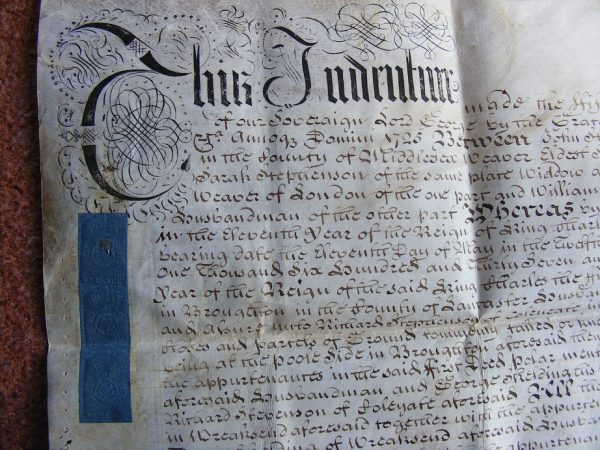 This Indenture made the
of our Sovereign Lord George by the Grace
Annoq Domini 1725 Between John
in the County of Middlesex Weaver Eldest
Sarah Stephenson of the same place Widdow
Weaver of London of the one part and William
Husbandman of the other part Whereas by
in the Eleventh Year of the Reign of King Charles
bearing date the Eleventh Day of May in the
One Thousand Six Hundred and Thirty Seven and
Year of the Reign of the said King Charles the
in Broughton in the County of Lancaster Husband
and Assure unto Richard Stephenson of
Closes and Parcels of Ground called or
being at the Poole Side in Broughton aforesaid the
the appurtenances in the said first Deed Polar
aforesaid Husbandman and George Fielding the
Richard Stevenson of aforesaid All the
in Wreaksend aforesaid together with the appurten
of Wreaksend aforesaid